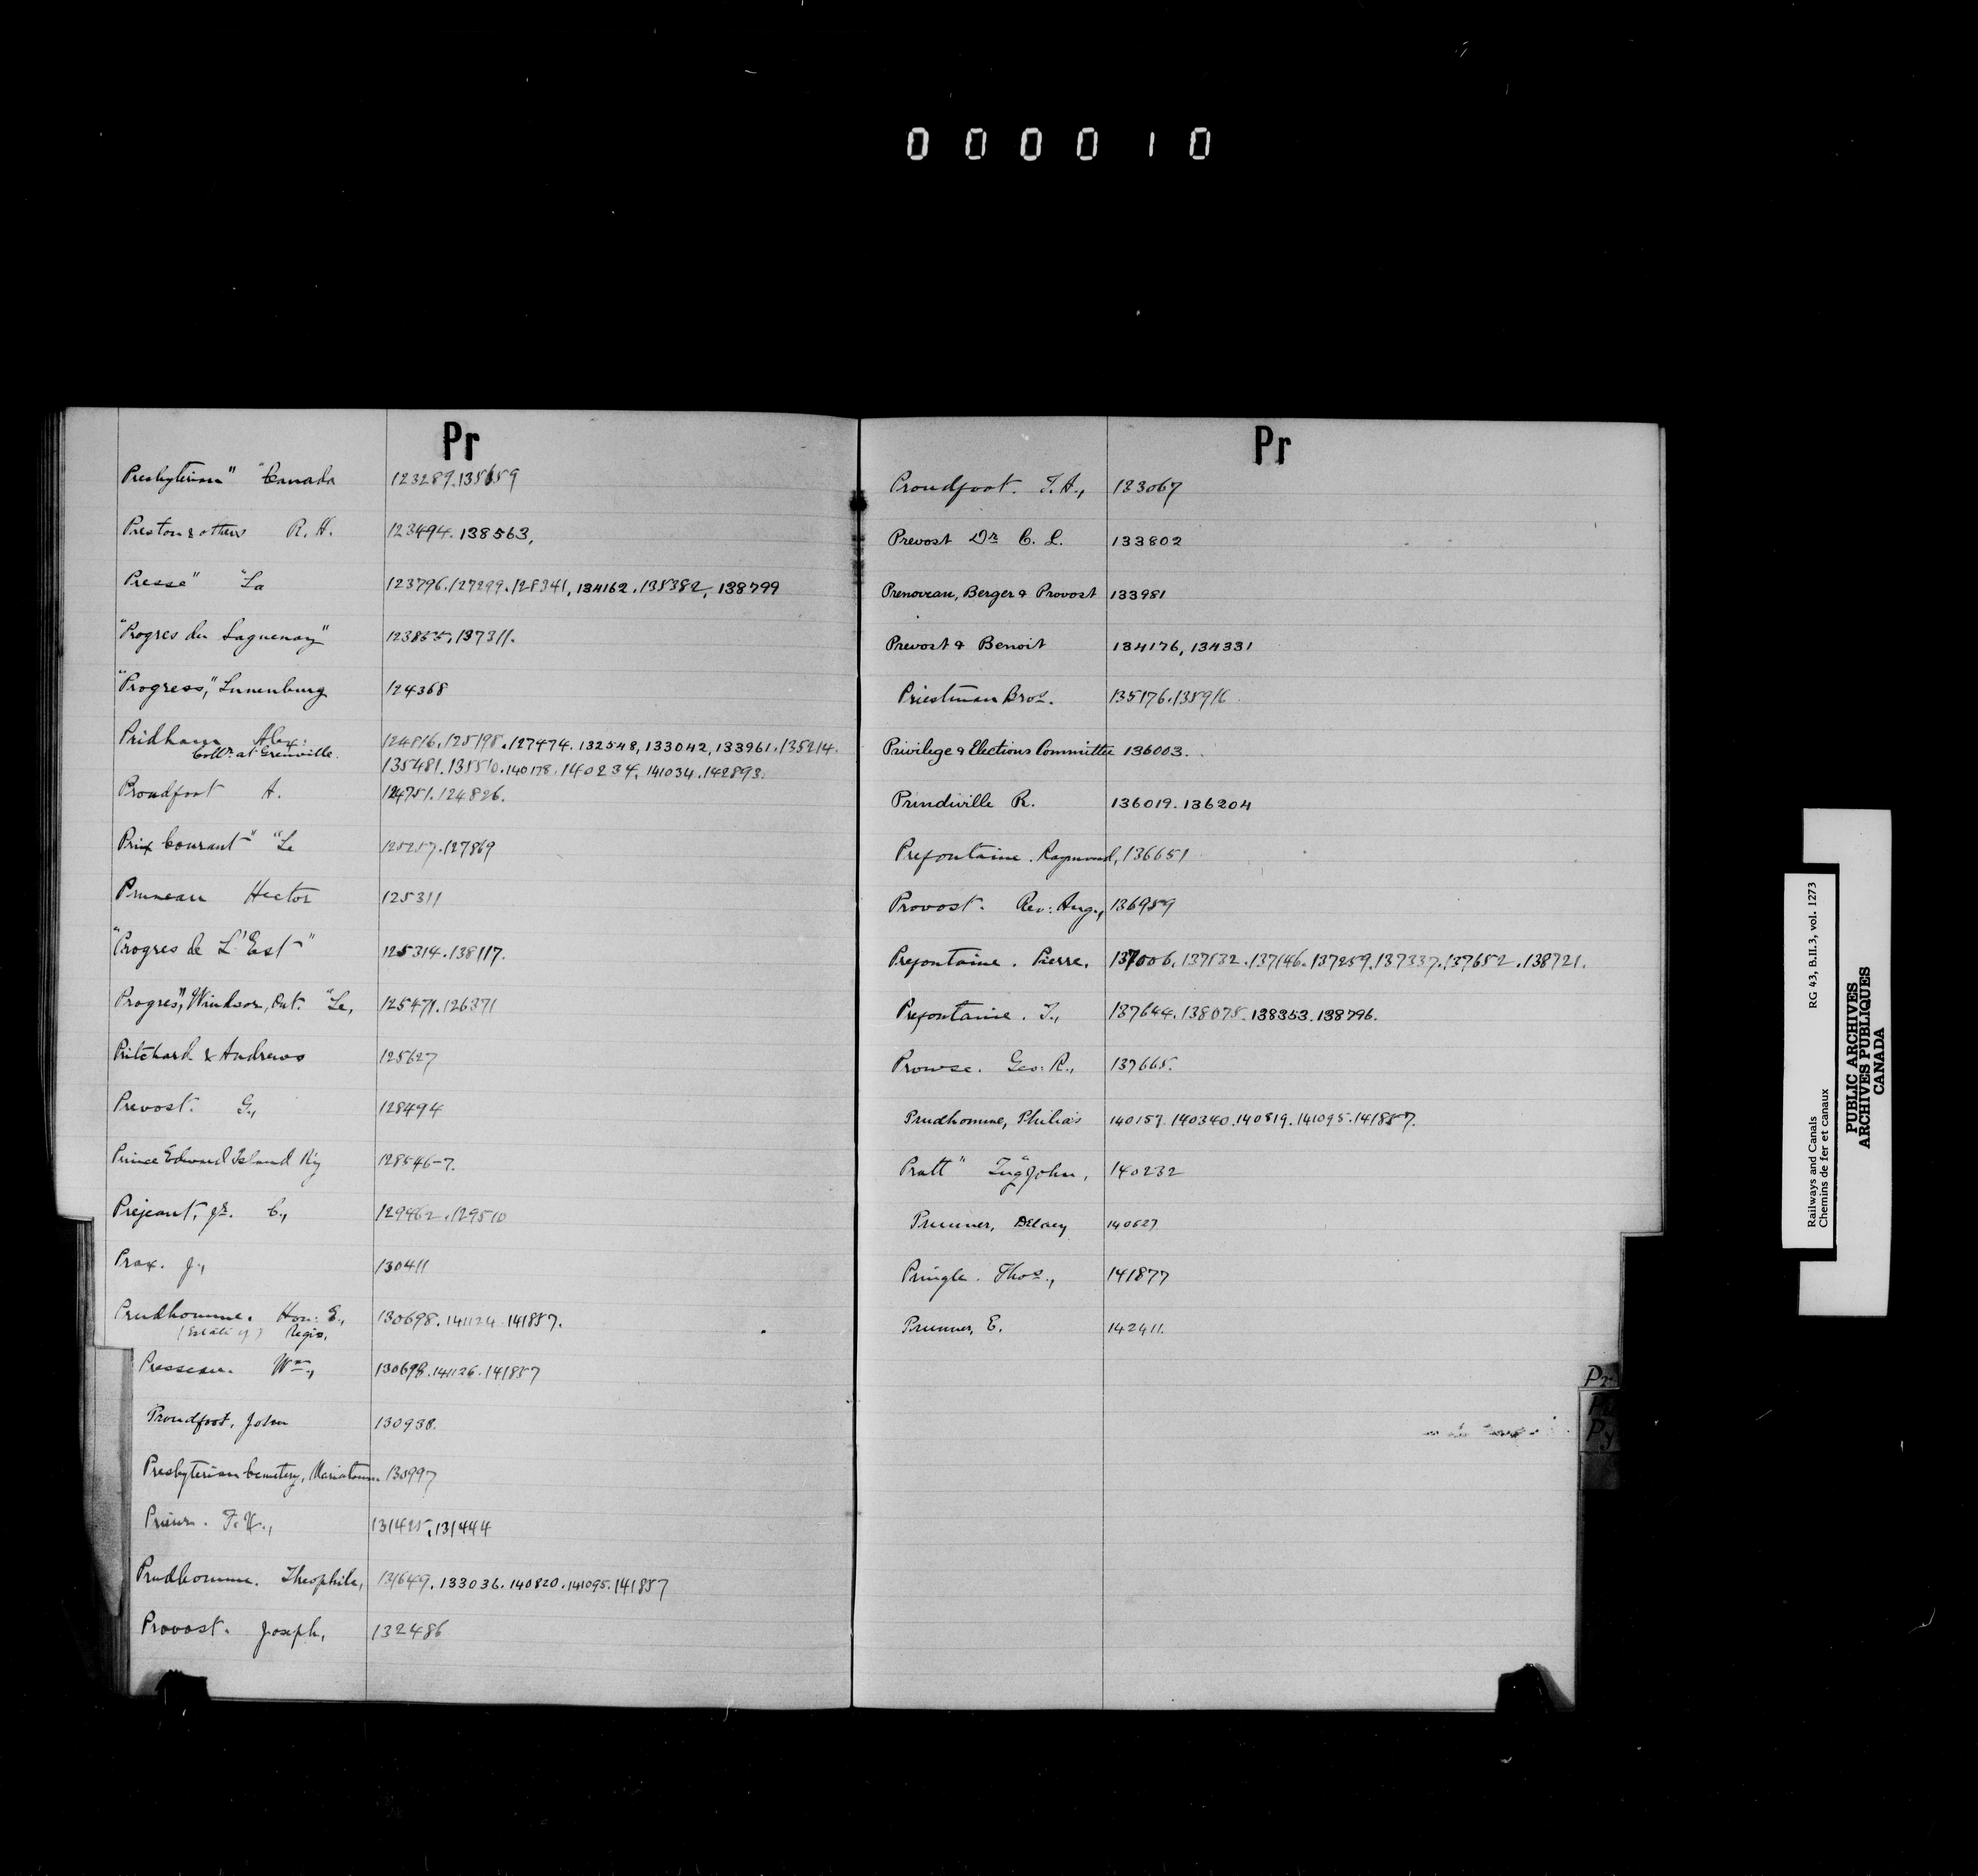 000010
Pr
Presbyterian" "Canada 123289.135659
Preston & others R. H. 123494. 138563,
Presse" "La 123796.127299.128341, 134162.135382, 138799
"Progres du Saguenay" 137311.
"Progress," Lunenburg 124368
Pridham Alex: 124816.125198.127474. 132548, 133042, 133961.135214.
Collr. at Grenville. 135481.135510.140178.140234, 141034.142893.
Proudfoot A. 124751.124826.
Prix Courant" "Le 125257.127869
Pruneau Hector 125311
"Progres de L'Est" 125314.138117.
Progres", Windsor, Ont. "Le, 125471.126371
Pritchard & Andrews 125627
Prevost. G., 128494
Prince Edward Island Ry 128546-7.
Prejeant, jr. C., 129462.129510
Prax. J., 130411
Prudhomme. Hon: E., 130698.141124.141857.
(Estate of) Regis.
Presseau. Wm., 130698.141126.141857
Proudfoot, John 130938.
Presbyterian Cemetery, Mariatown 130997
Prieur. F. X., 131425.131444
Prudhomme. Theophile, 131649.133036.140820.141095.141857
Provost. Joseph, 132486
Pr
Proudfoot. T. A., 133067
Prevost Dr C. L. 133802
Prenoveau, Berger & Provost 133981
Prevost & Benoit 134176, 134331
Priestman Bros. 135176.135916
Privilege & Elections Committee 136003.
Prindiville R. 136019.136204
Prefontaine. Raymond, 136651
Provost. Rev: Aug., 136959
Prefontaine. Pierre. 137006.137132.137146.137259.137337.137652.138721.
Prefontaine. T., 137644.138075.138353.138796.
Prowse. Geo: R., 137665.
Prudhomme, Philias 140157.140340.140819.141095.141857.
Pratt" Tug "John, 140232
Prunner, Delaey 140627
Pringle. Thos., 141877
Prunner, E. 142411.
Pr
Py
Railways and Canals RG 43, B.II.3, vol. 1273
Chemins de fer et canaux
PUBLIC ARCHIVES
ARCHIVES PUBLIQUES
CANADA